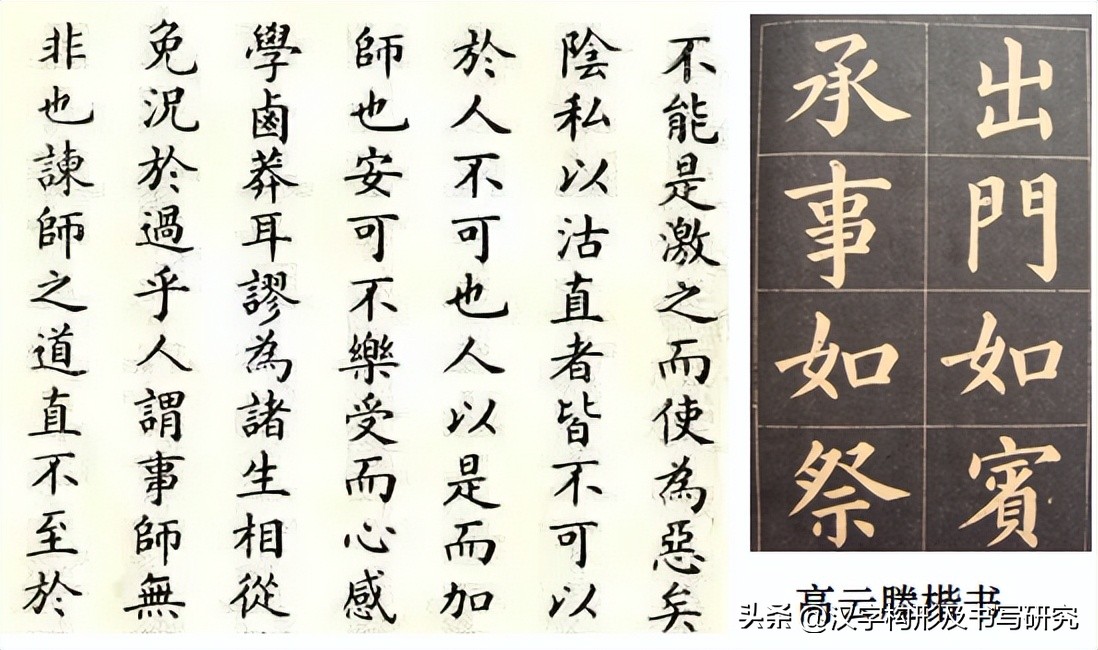 不能是激之而使為惡矣
陰私以沽直者皆不可以
於人不可也人以是而加
師也安可不樂受而心感
學鹵莽耳謬為諸生相從
免況於過乎人謂事師無
非也諫師之道直不至於
出門如賓
承事如祭
高云勝楷书
头条 @汉字构形及书写研究